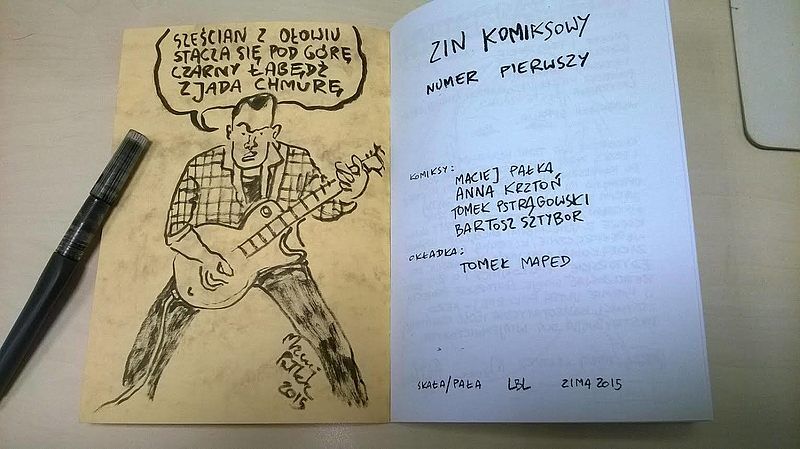 SZEŚCIAN Z OŁOWIU
STACZA SIĘ POD GÓRĘ
CZARNY ŁABĘDŹ
ZJADA CHMURĘ
Maciej
Pałka
2015
ZIN KOMIKSOWY
NUMER PIERWSZY
KOMIKSY:
MACIEJ PAŁKA
ANNA KRZTOŃ
TOMEK PSTRĄGOWSKI
BARTOSZ SZTYBOR
OKŁADKA:
TOMEK MAPED
SKAŁA/PAŁA LBL ZIMA 2015